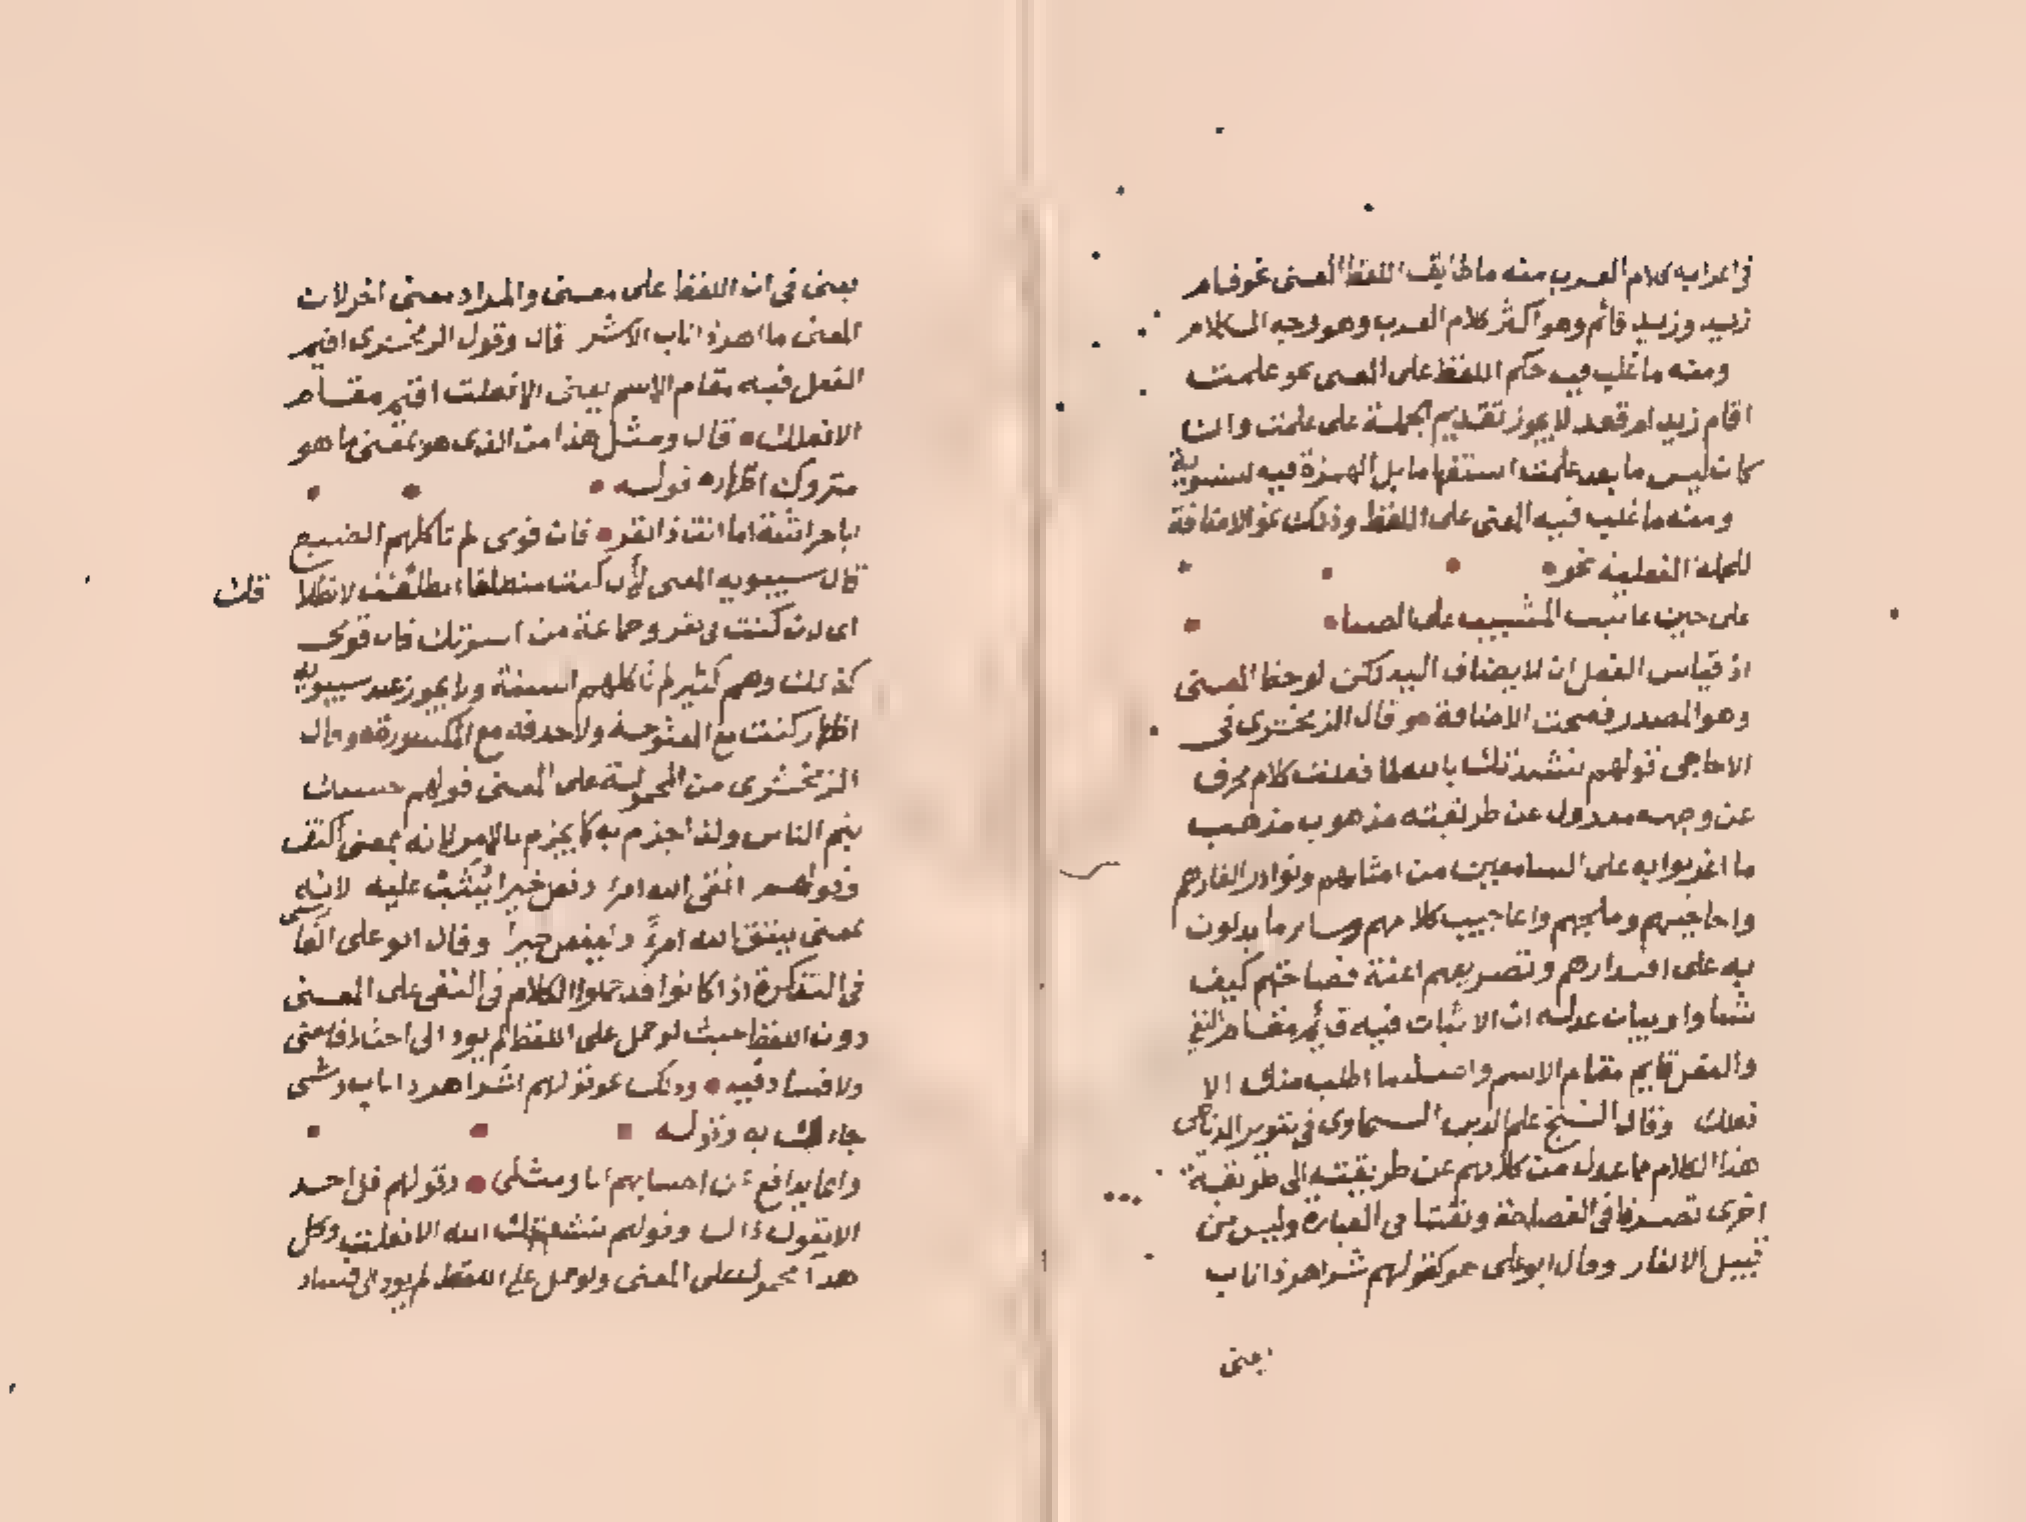 في اعرابه كلام العرب منه ما طابق اللفظ المعنى نحو قام
زيد وزيد قائم وهو اكثر كلام العرب وهو وجه الكلام
ومنه ما غلب فيه حكم اللفظ على المعنى نحو علمت
اقام زيد ام قعد لا يجوز تقديم الجملة على علمت وان
كان ليس ما بعد علمت استفهاما بل الهمزة فيه للتسوية
ومنه ما غلب فيه المعنى على اللفظ وذلك نحو الاضافة
للجملة الفعلية نحو
على حين عاتبت المشيب على الصبا
اذ قياس الفعل ان لا يضاف اليه لكن لوحظ المعنى
وهو المصدر فصحت الاضافة وقال الزمخشري في
الاحاجي قولهم نشدتك بالله لما فعلت كلام محرف
عن وجهه معدول عن طريقته مذهوب مذهب
ما اغربوا به على السامعين من امثالهم ونوادر الغازهم
واحاجيهم وملحهم واعاجيب كلامهم وسائر ما يدلون
به على اقتدارهم وتصريفهم اعنة فصاحتهم كيف
شاوا وبيان عدله ان الاثبات فيه قائم مقام النفي
والفعل قايم مقام الاسم واصله ما اطلب منك الا
فعلك وقال الشيخ علم الدين السخاوي في تنوير الدياجي
هذا الكلام مما عدل من كلامهم عن طريقته الى طريقة
اخرى تصرفا في الفصاحة وتفننا في العبارة وليس من
قبيل الالغاز وقال ابو علي هو كقولهم شر اهر ذا ناب
يعنى
يعنى في ان اللفظ على معنى والمراد معنى اخر لان
المعنى ما اهر ذا ناب الا شر قال وقول الزمخشري اقيم
الفعل فيه مقام الاسم يعنى الا فعلت اقيم مقام
الا فعلك قال ومثل هذا من الذي هو بمعنى ما هو
متروك اظهاره قوله
ابا خراشة اما انت ذا نفر فان قومي لم تاكلهم الضبع
قال سيبويه المعنى لأن كنت منطلقا انطلقت لانطلا
قك
اى لان كنت في نفر وجماعة من اسرتك فان قومى
كذلك وهم كثير لم تاكلهم السنة ولا يجوز عند سيبويه
اظهار كنت مع المفتوحة ولا حذفه مع المكسورة وقال
الزمخشرى من المحمول على المعنى قولهم حسبك
ينم الناس ولذا جزم به كما يجزم بالامر لانه بمعنى اكفف
وقولهم اتقى الله امرؤ فعل خيرا يثب عليه لانه
بمعنى ليتق الله امرؤ وليفعل خيرا وقال ابو على الفارسى
في التذكرة اذا كانوا قد حملوا الكلام في النفى على المعنى
دون اللفظ حيث لو حمل على اللفظ لم يود الى اختلاف معنى
ولا فساد فيه وذلك نحو قولهم شر اهر ذا ناب وشى
جاء بك وقوله
وانما يدافع عن احسابهم انا ومثلى وقولهم قل احد
الا يقول ذاك وقولهم نشدتك الله الا فعلت وكل
هذا محمول على المعنى ولو حمل على اللفظ لم يود الى فساد